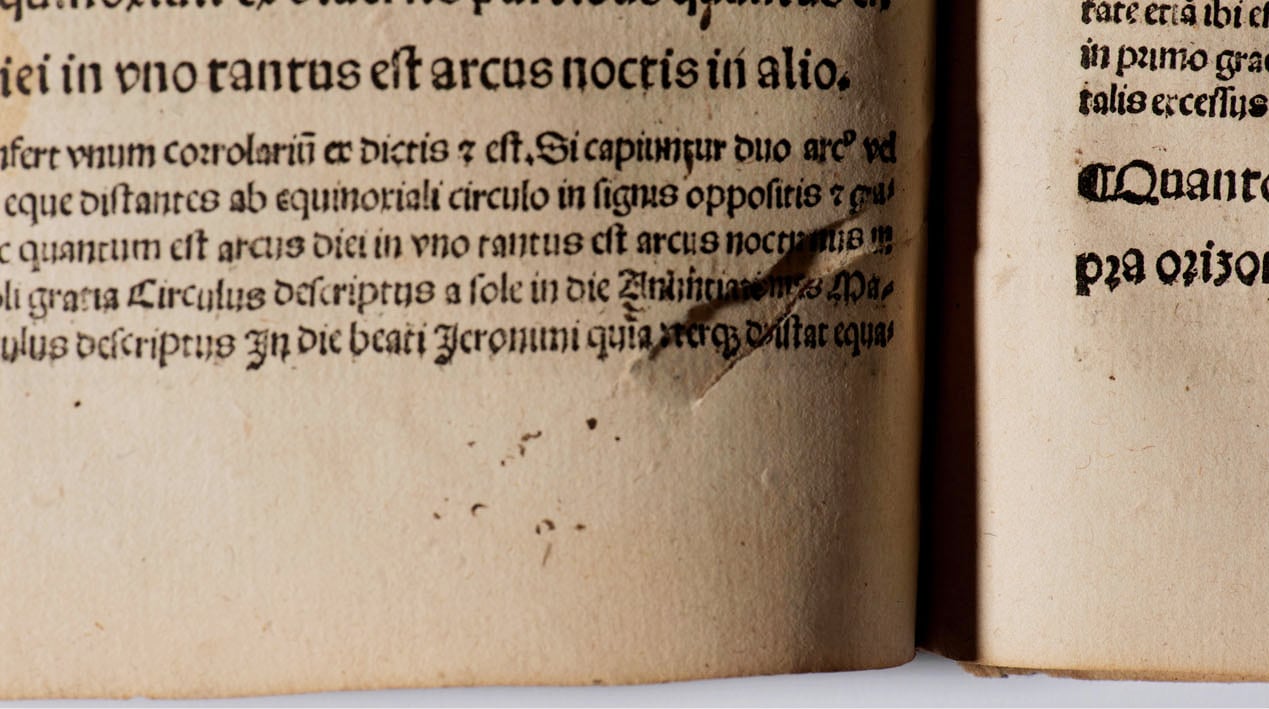 iei in vno tantus eſt arcus noctis in alio.
nfert vnum coꝛrolariū ex dictis ⁊ eſt. Si capiuntur duo arcꝰ vel
eque diſtantes ab equinoxiali circulo in ſignis oppoſitis ⁊ gra⸗
c quantum eſt arcus diei in vno tantus eſt arcus nocturnus in
oli gratia Circulus deſcriptus a ſole in die Annūtiationis Ma⸗
ulus deſcriptus In die beati Jeronimi quia vterqꝫ diſtat equa⸗
in pꝛimo grad
talis exceſſus
¶Quanto
pꝛa oꝛizon